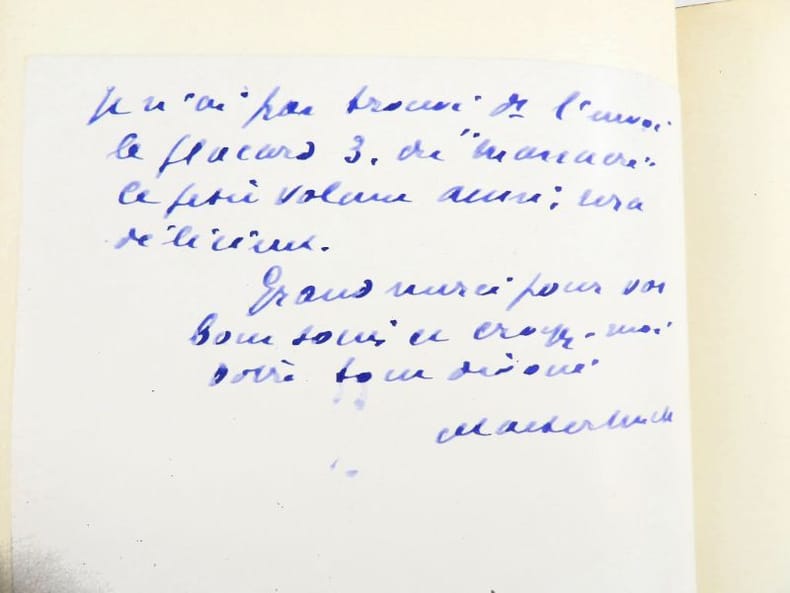 Je n'ai pas trouvé ds l'envoi
le placard 3. du "massacre".
Le petit volume aussi, sera
délicieux.
Grand merci pour vos
bons soins et croyez-moi
votre tout dévoué
Maeterlinck